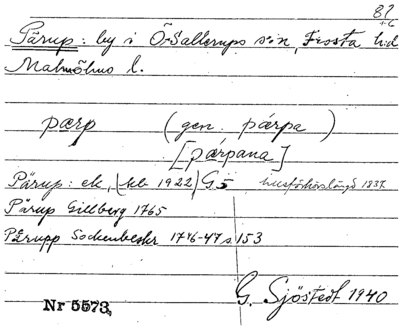 82
+c
Pärup: by i Ö Sallerups s:n, Frosta hd
Malmöhus l.
pærp (gen. párpa)
[párpana]
Pärup: ek, (kb 1922) G.5 husförhörslängd 1837.
Pärup Gillberg 1765
Pärupp Sockenbeskr 1746-47 s. 153
G. Sjöstedt 1940
Nr 5573,